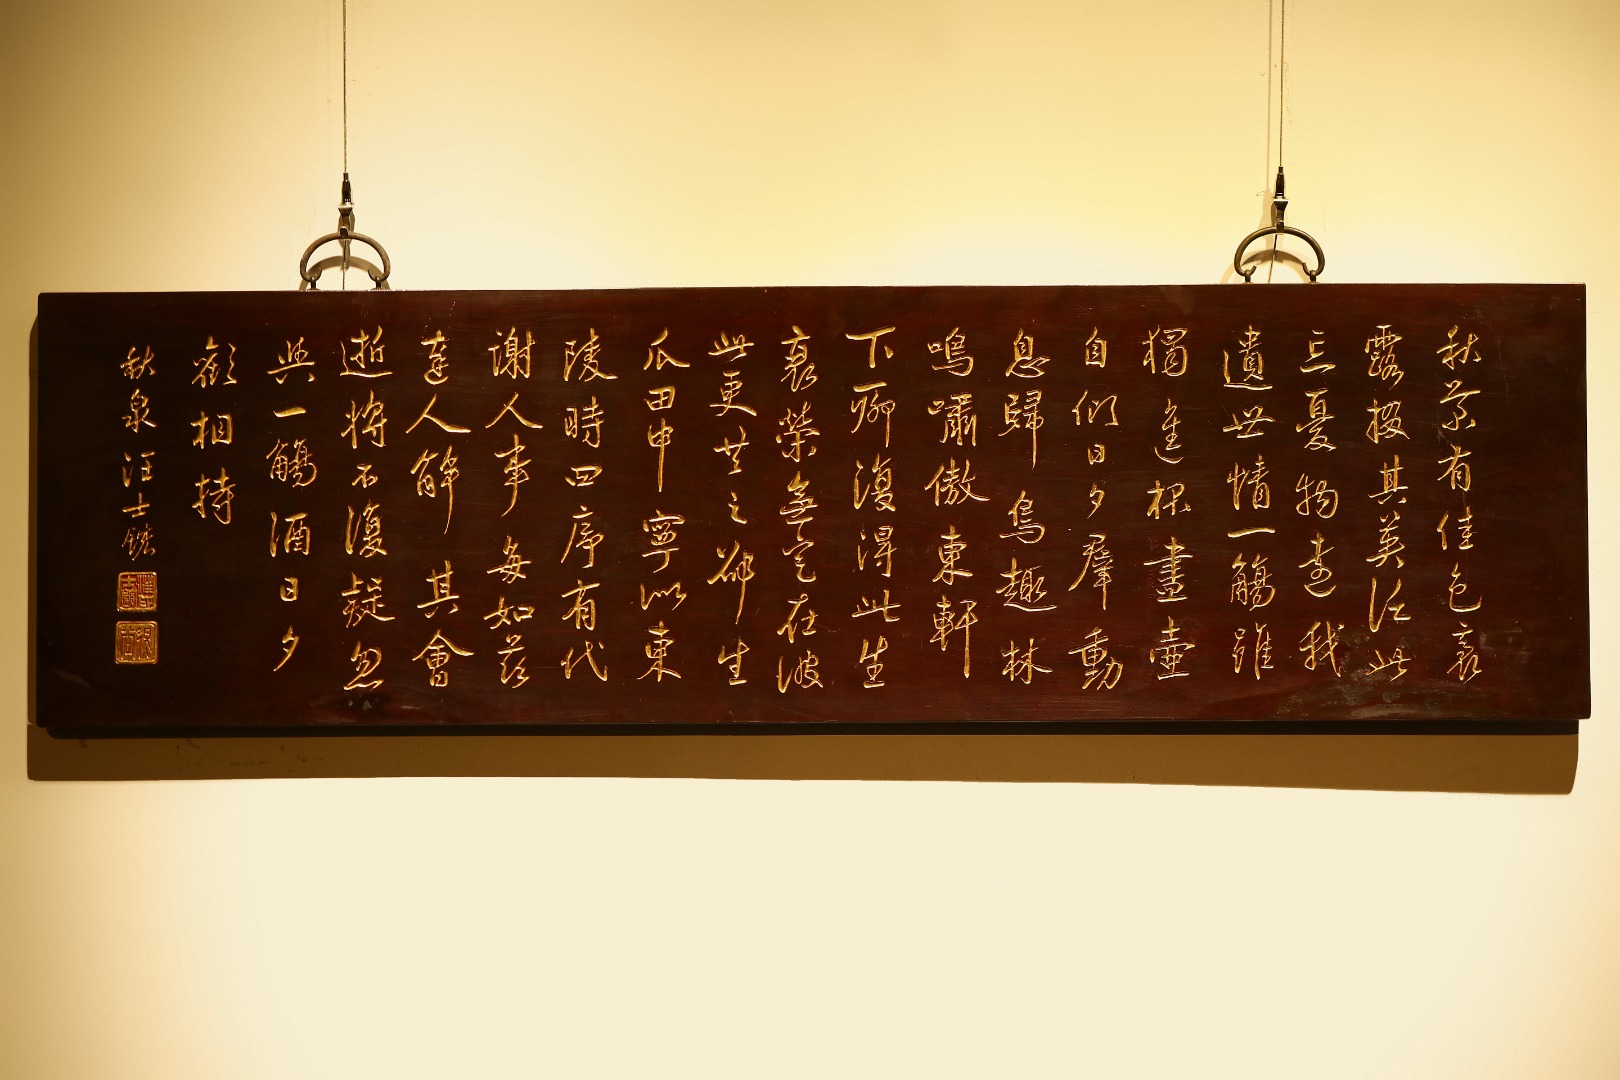 秋菊有佳色裛
露掇其英泛此
忘憂物遠我
遺世情一觴雖
獨進杯盡壺
自傾日夕羣動
息歸鳥趨林
鳴嘯傲東軒
下聊復得此生
衰榮無定在彼
此更共之邵生
瓜田中寧似東
陵時四序有代
謝人事每如茲
達人解其會
逝將不復疑忽
與一觴酒日夕
歡相持
秋泉汪士鋐